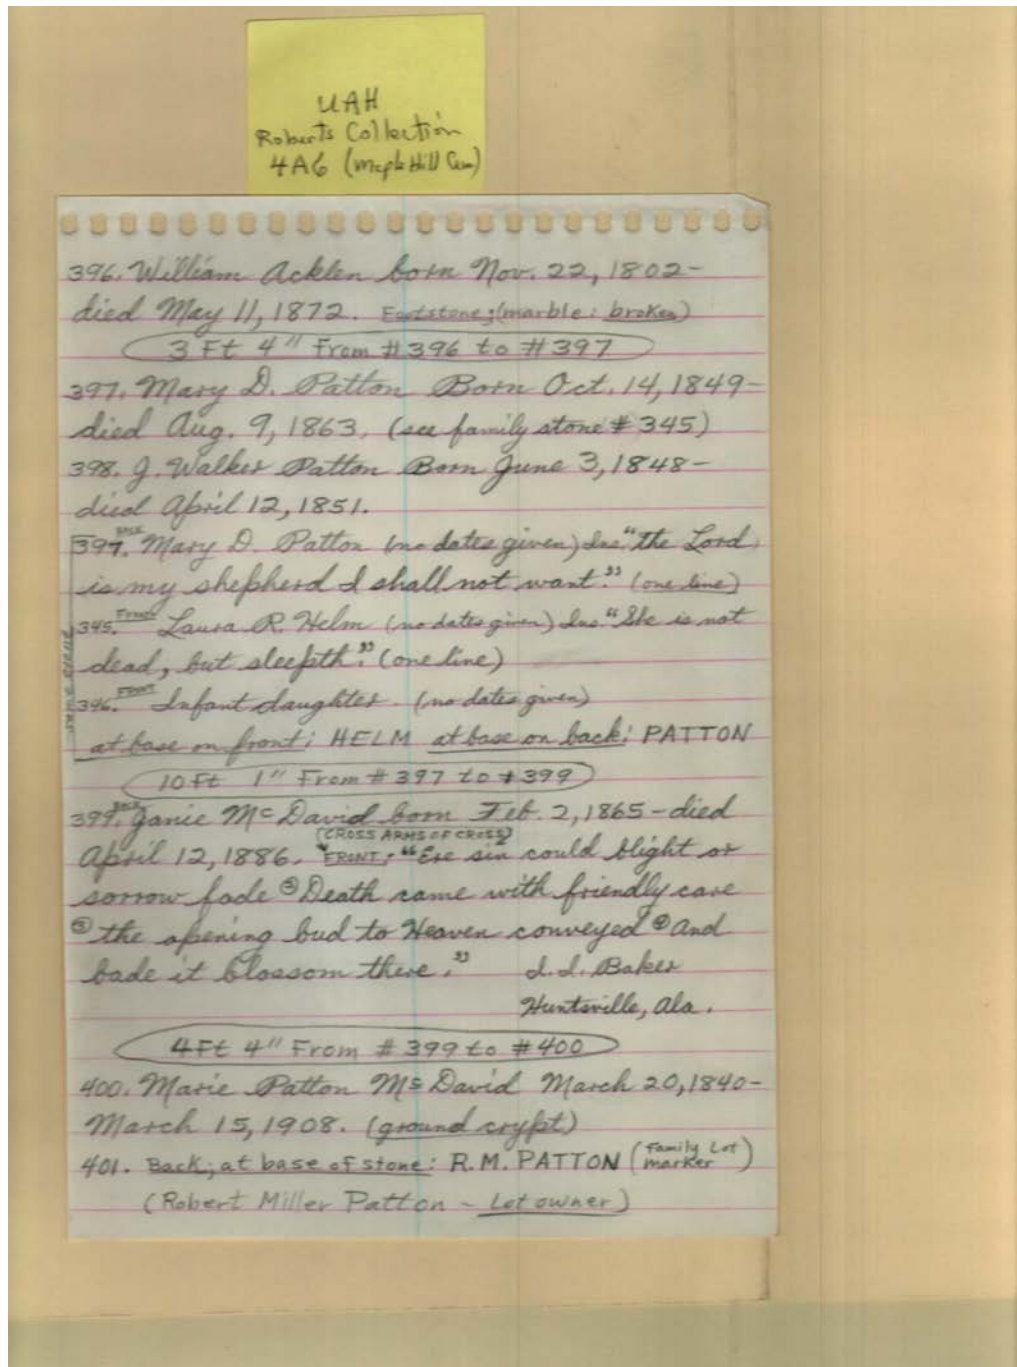 UAH
Roberts Collection
4A6 (Maple Hill Cem)
396. William Acklen born Nov. 22, 1802-
died May 11, 1872. Footstone; (marble: broken)
3 Ft 4" From #396 to #397
397. Mary D. Patton Born Oct. 14, 1849-
died Aug. 9, 1863. (see family stone #345)
398. J. Walker Patton Born June 3, 1848-
died April 12, 1851.
BACK
397. Mary D. Patton (no dates given) Ins "the Lord
is my shepherd I shall not want." (one line)
345. FRONT Laura R. Helm (no dates given) Ins. "She is not
dead, but sleepth." (one line)
346. FRONT Infant daughter. (no dates given)
SAME STONE
at base on front: HELM at base on back: PATTON
10 Ft 1" From #397 to #399
BACK
399. Janie McDavid born Feb. 2, 1865 - died
(CROSS ARMS OF CROSS)
April 12, 1886. FRONT: "Ere sin could blight or
sorrow fade ② Death came with friendly care
③ the opening bud to Heaven conveyed ④ And
bade it blossom there." I.I. Baker
Huntsville, Ala.
4 Ft 4" From #399 to #400
400. Marie Patton McDavid March 20, 1840-
March 15, 1908. (ground crypt)
401. Back; at base of stone: R.M. PATTON (Family Lot marker)
(Robert Miller Patton - Lot owner)